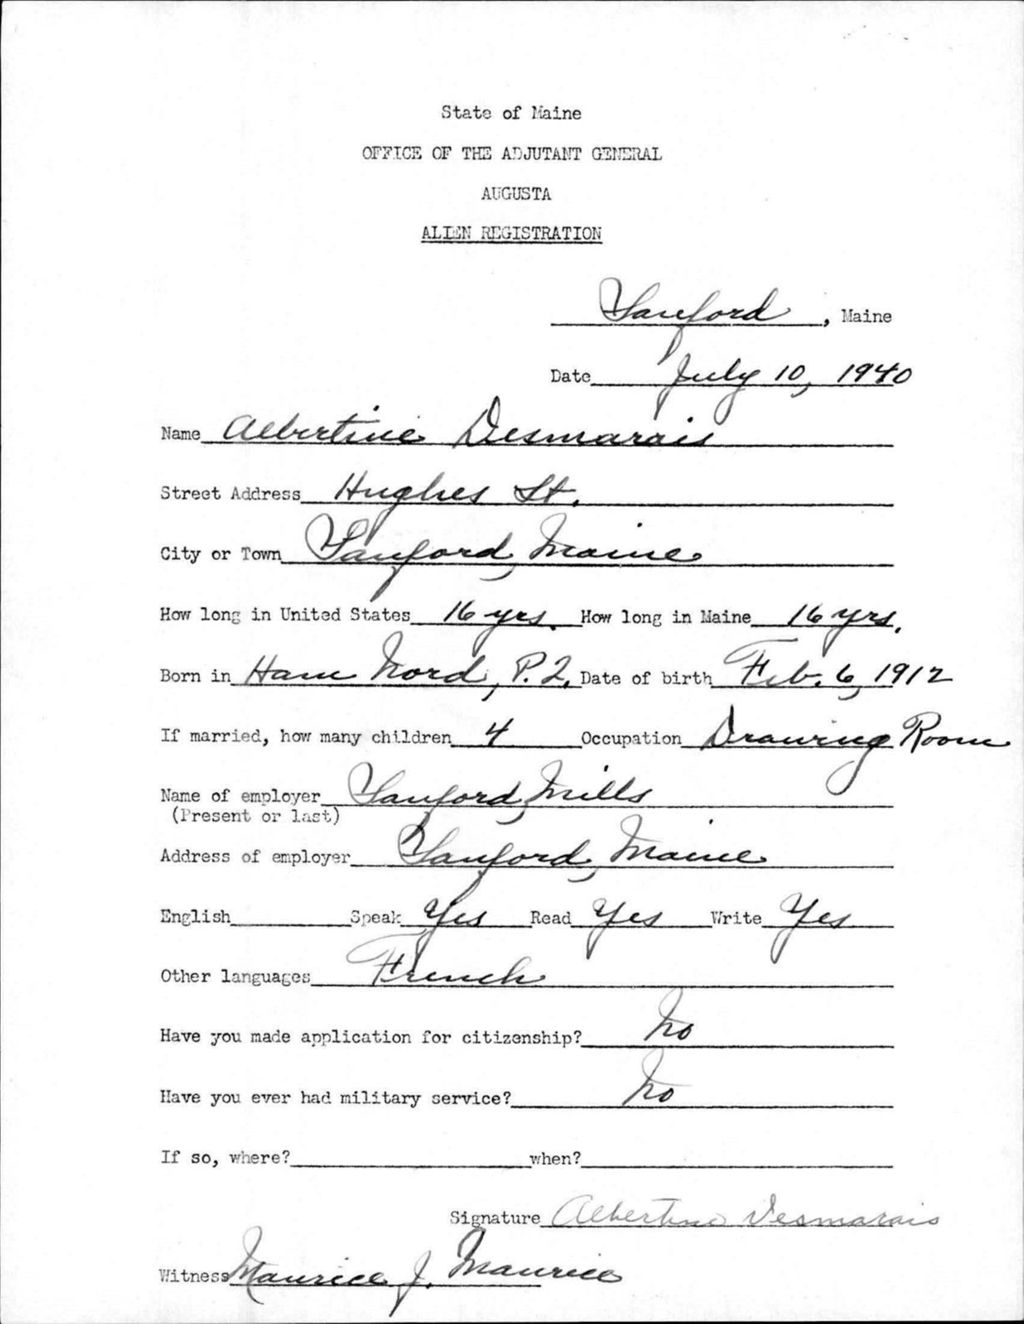 State of Maine
OFFICE OF THE ADJUTANT GENERAL
AUGUSTA
ALIEN REGISTRATION
Sanford, Maine
Date July 10, 1940
Name Albertine Desmarais
Street Address Hughes St.
City or Town Sanford, Maine
How long in United States 16 yrs. How long in Maine 16 yrs.
Born in Ham Nord, P.Q. Date of birth Feb. 6, 1912
If married, how many children 4 Occupation Drawing Room
Name of employer Sanford Mills
(Present or last)
Address of employer Sanford, Maine
English Speak Yes Read Yes Write Yes
Other languages French
Have you made application for citizenship? No
Have you ever had military service? No
If so, where? when?
Signature Albertine Desmarais
Witness Maurice J. Maurice